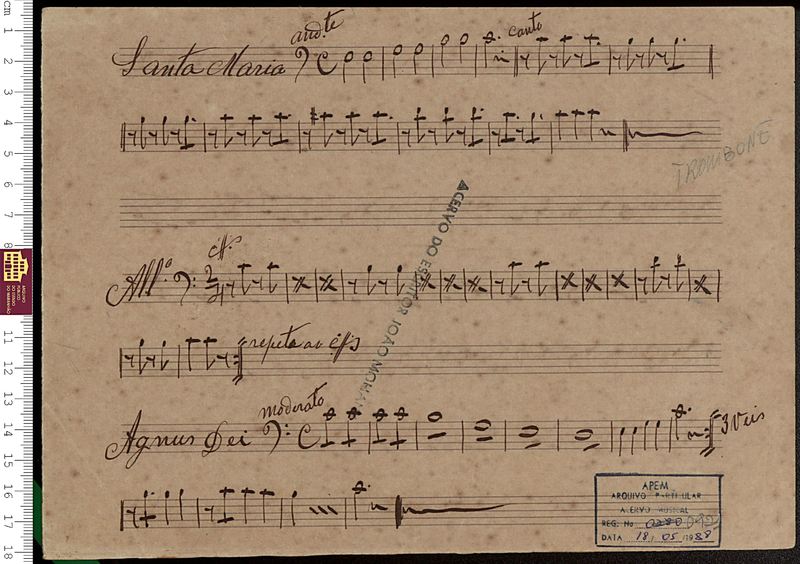 cm 1 2 3 4 5 6 7 8 11 12 13 14 15 16 17 18
and.te canto
Santa Maria
TROMBONE
ACERVO DO ESCRITOR JOÃO MOHANA
All.º 2/4
repete ao
moderato
Agnus Dei 3 Veis
APEM
ARQUIVO PARTICULAR
ACERVO MUSICAL
REG. No 0280
DATA 18 / 05 / 1988